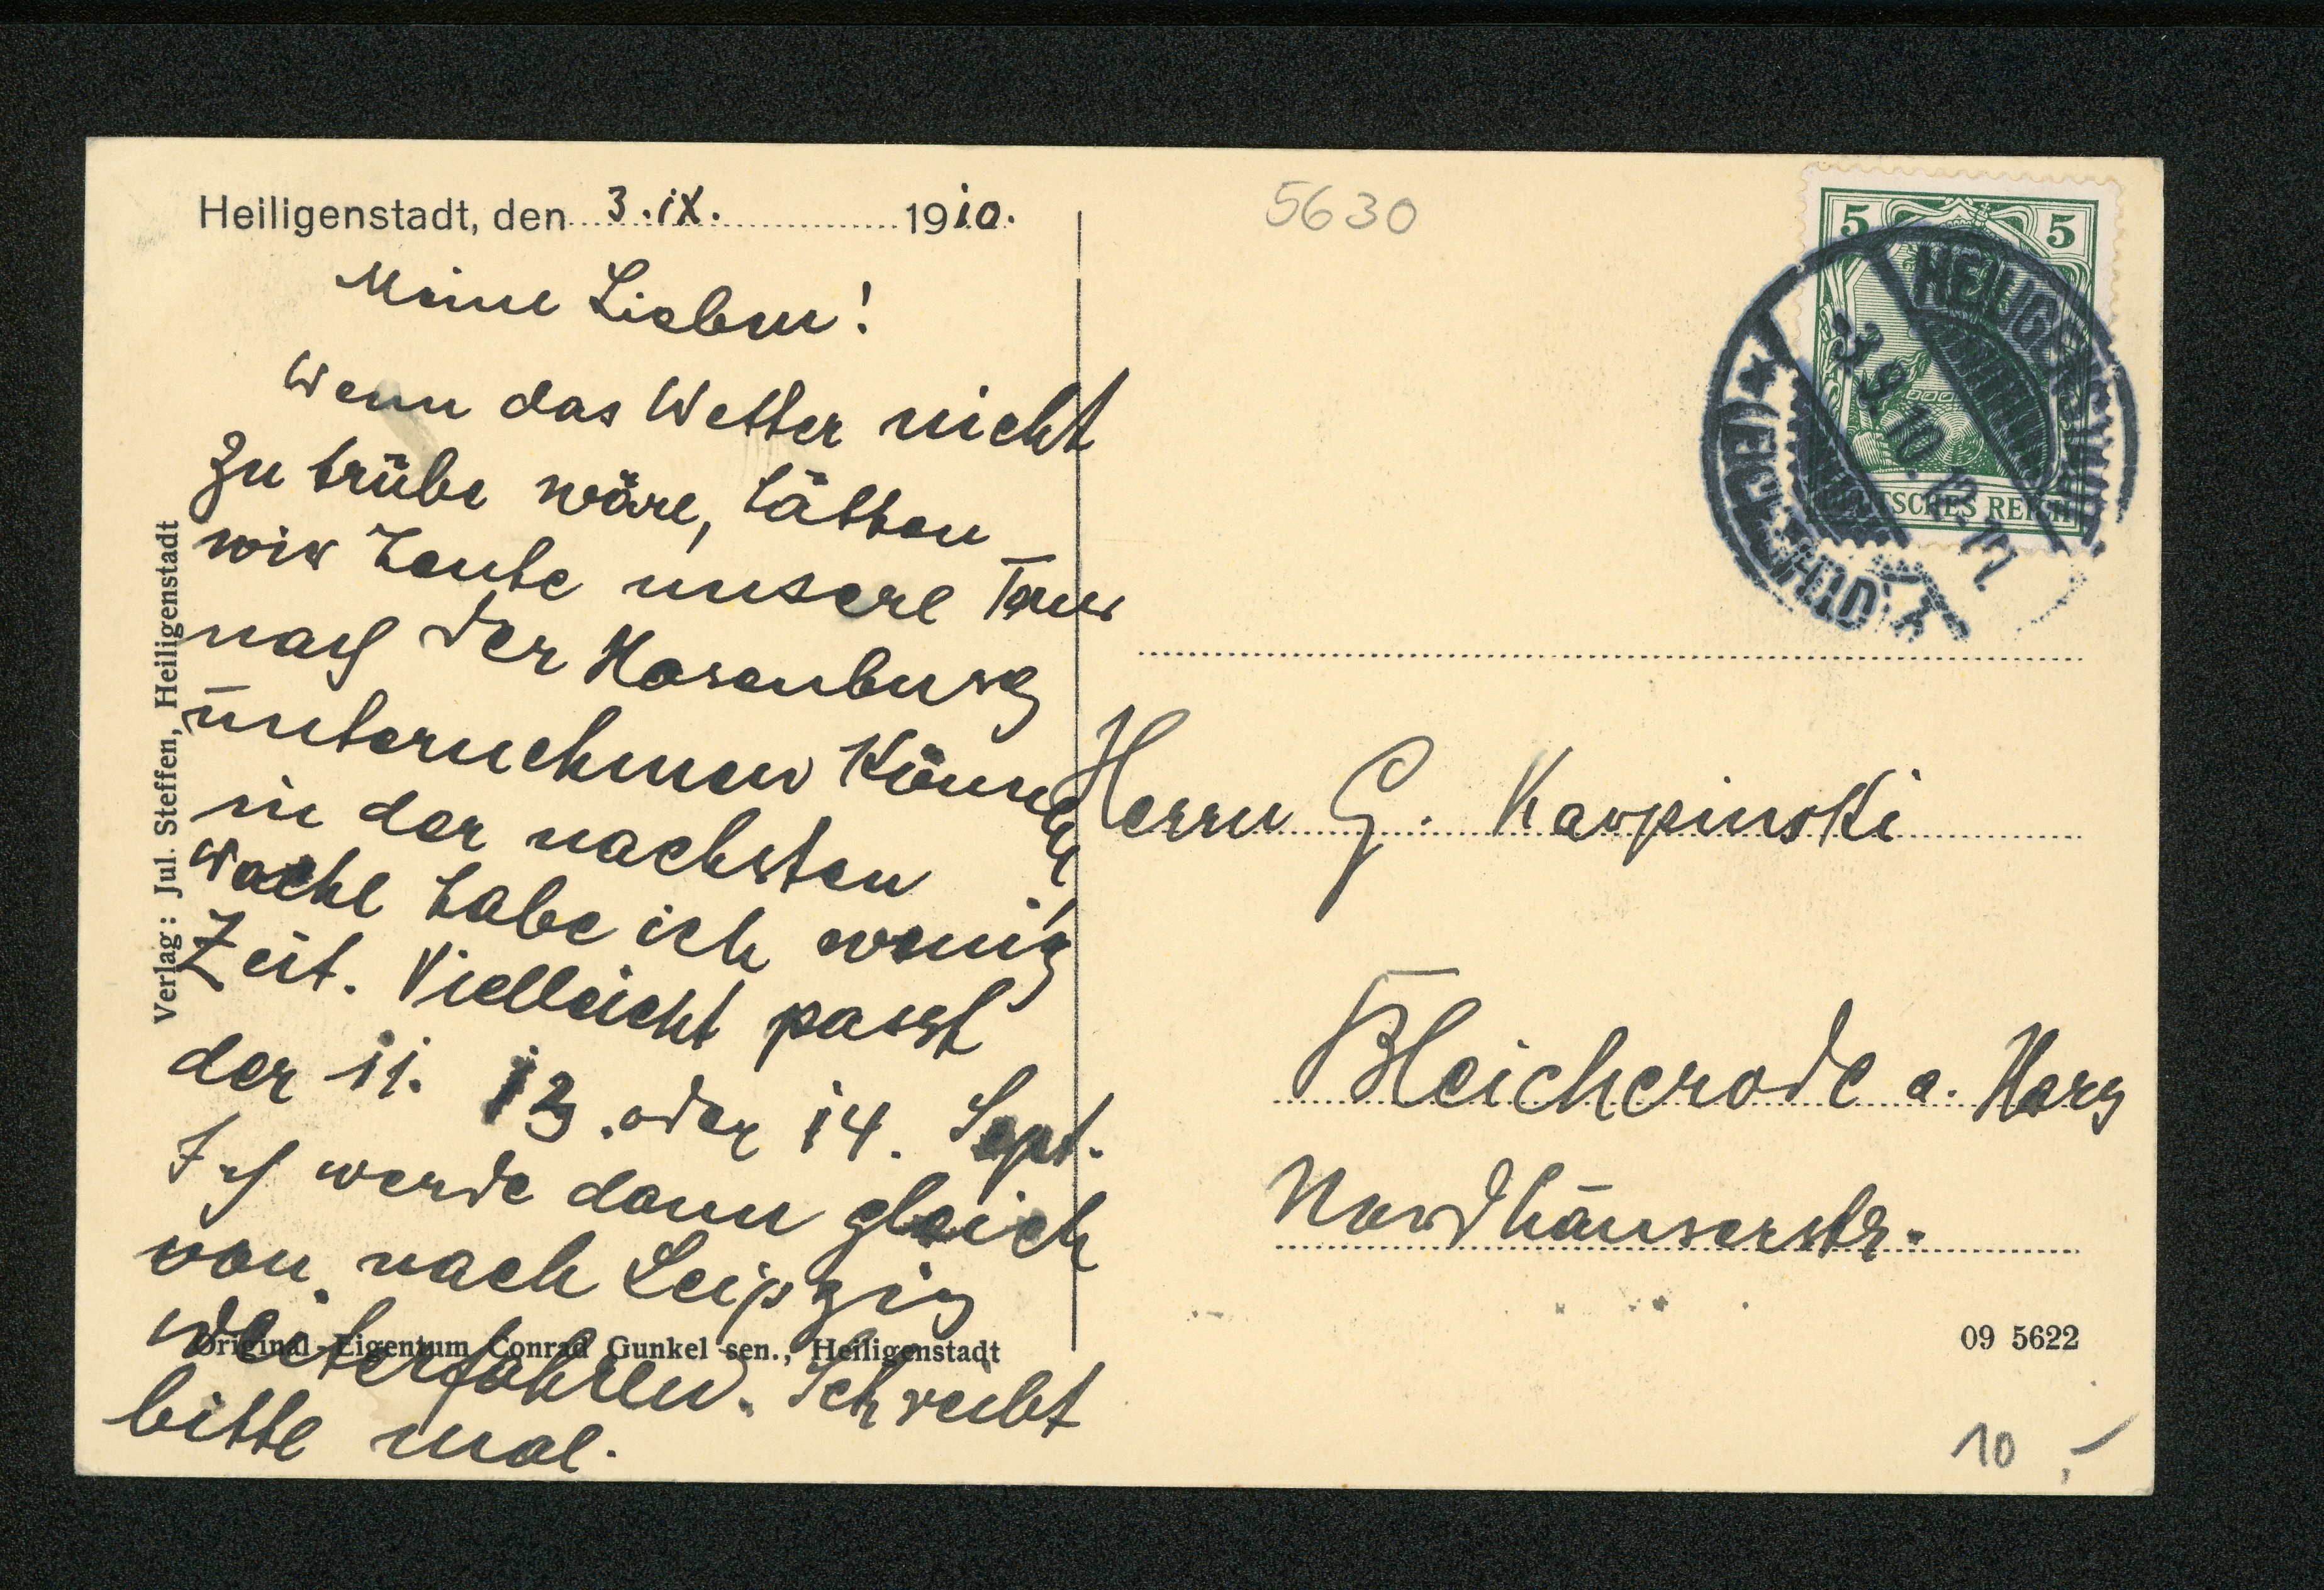 Heiligenstadt, den 3. IX. 1910.
Meine Lieben!
Wenn das Wetter nicht
zu trübe wäre, hätten
wir heute unsere Tour
nach der Hasenburg
unternehmen können,
in der nächsten
Woche habe ich wenig
Zeit. Vielleicht passt
der 11. 13. oder 14. Sept.
Ich werde dann gleich
von nach Leipzig
weiterfahren. Schreibt
bitte mal.
Verlag: Jul. Steffen, Heiligenstadt
Original-Eigentum Conrad Gunkel sen., Heiligenstadt
5630
5 5
DEUTSCHES REICH
HEILIGENSTADT
(EICHSFELD)
3.9.10.
Herrn G. Karpinski
Bleicherode a. Harz
Nordhäuserstr.
09 5622
10,-